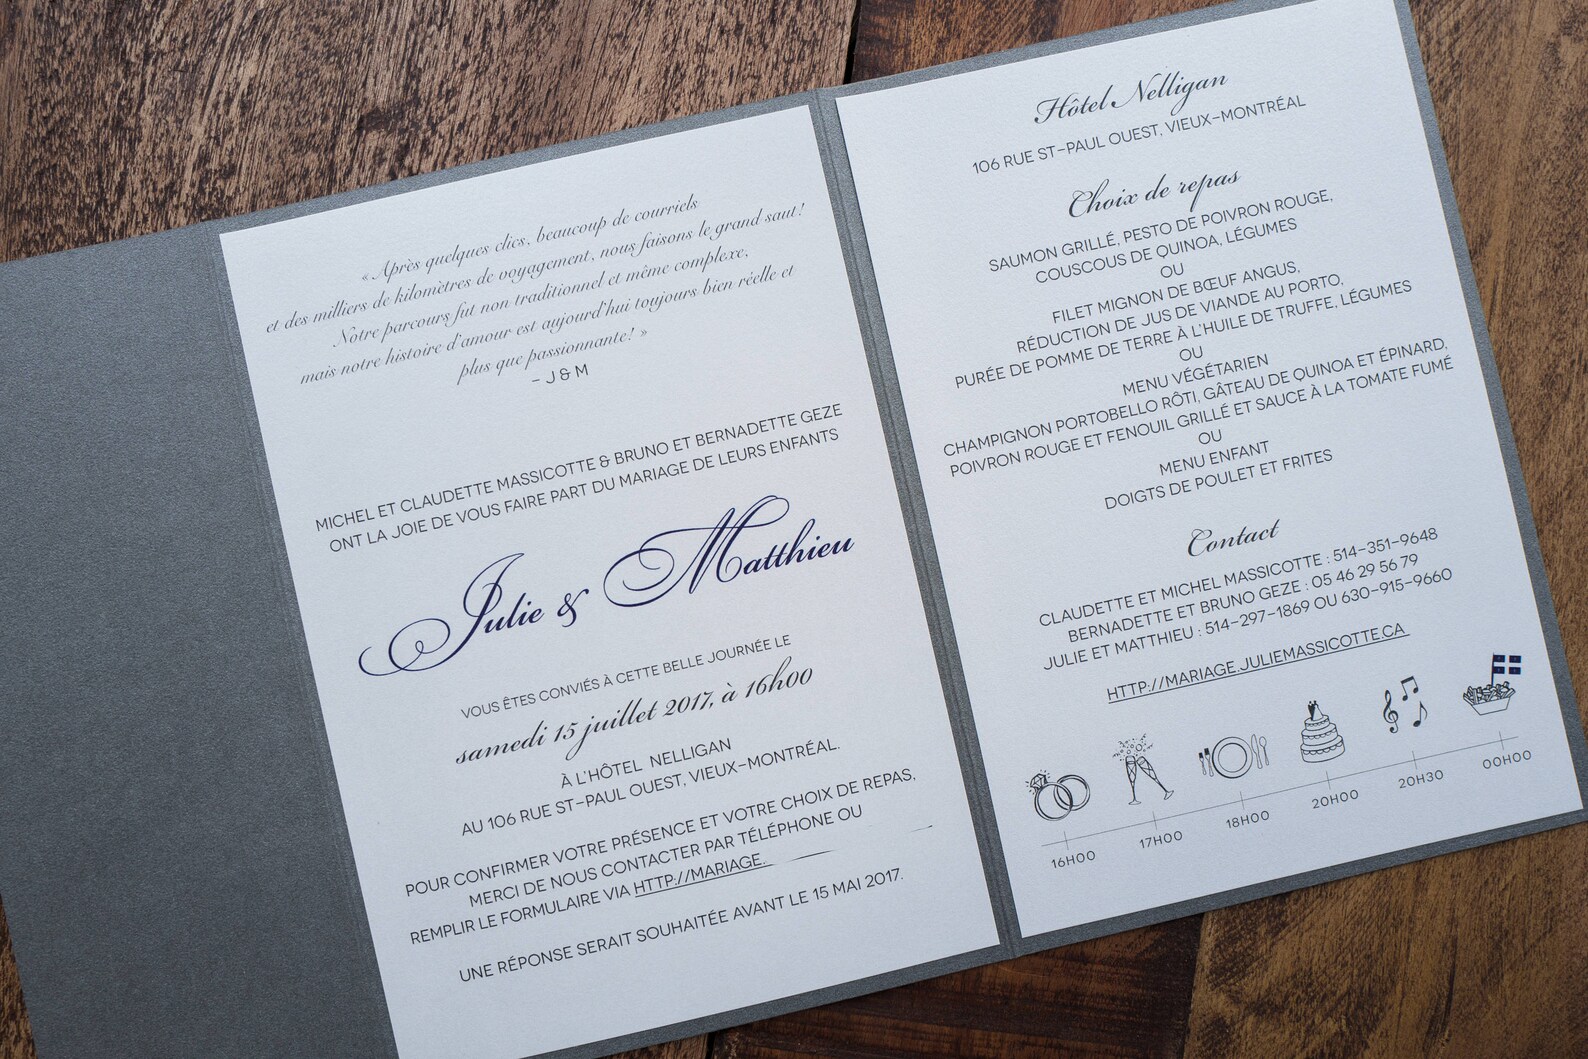 « Après quelques clics, beaucoup de courriels
et des milliers de kilomètres de voyagement, nous faisons le grand saut!
Notre parcours fut non traditionnel et même complexe,
mais notre histoire d'amour est aujourd'hui toujours bien réelle et
plus que passionnante! »
- J & M
MICHEL ET CLAUDETTE MASSICOTTE & BRUNO ET BERNADETTE GEZE
ONT LA JOIE DE VOUS FAIRE PART DU MARIAGE DE LEURS ENFANTS
Julie & Matthieu
VOUS ÊTES CONVIÉS À CETTE BELLE JOURNÉE LE
samedi 15 juillet 2017, à 16h00
À L'HÔTEL NELLIGAN
AU 106 RUE ST-PAUL OUEST, VIEUX-MONTRÉAL.
POUR CONFIRMER VOTRE PRÉSENCE ET VOTRE CHOIX DE REPAS,
MERCI DE NOUS CONTACTER PAR TÉLÉPHONE OU
REMPLIR LE FORMULAIRE VIA HTTP://MARIAGE.
UNE RÉPONSE SERAIT SOUHAITÉE AVANT LE 15 MAI 2017.
Hôtel Nelligan
106 RUE ST-PAUL OUEST, VIEUX-MONTRÉAL
Choix de repas
SAUMON GRILLÉ, PESTO DE POIVRON ROUGE,
COUSCOUS DE QUINOA, LÉGUMES
OU
FILET MIGNON DE BŒUF ANGUS,
RÉDUCTION DE JUS DE VIANDE AU PORTO,
PURÉE DE POMME DE TERRE À L'HUILE DE TRUFFE, LÉGUMES
OU
MENU VÉGÉTARIEN
CHAMPIGNON PORTOBELLO RÔTI, GÂTEAU DE QUINOA ET ÉPINARD,
POIVRON ROUGE ET FENOUIL GRILLÉ ET SAUCE À LA TOMATE FUMÉ
OU
MENU ENFANT
DOIGTS DE POULET ET FRITES
Contact
CLAUDETTE ET MICHEL MASSICOTTE : 514-351-9648
BERNADETTE ET BRUNO GEZE : 05 46 29 56 79
JULIE ET MATTHIEU : 514-297-1869 OU 630-915-9660
HTTP://MARIAGE.JULIEMASSICOTTE.CA
16H00 17H00 18H00 20H00 20H30 00H00